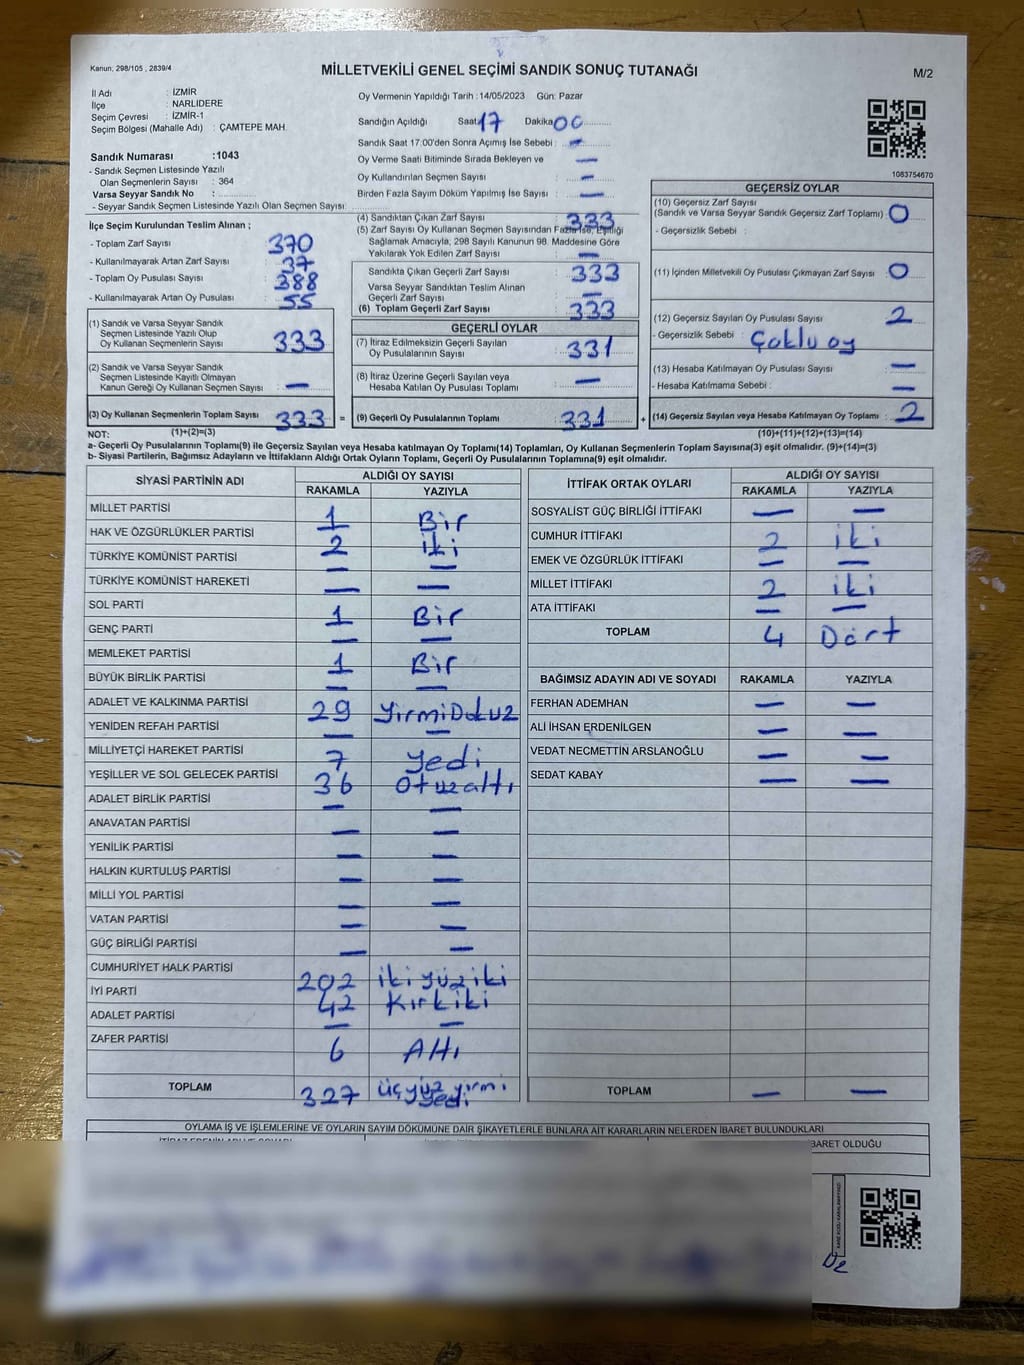 Kanun; 298/105 , 2839/4
MİLLETVEKİLİ GENEL SEÇİMİ SANDIK SONUÇ TUTANAĞI
M/2
İl Adı : İZMİR
İlçe : NARLIDERE
Seçim Çevresi : İZMİR-1
Seçim Bölgesi (Mahalle Adı) : ÇAMTEPE MAH.
Sandık Numarası :1043
- Sandık Seçmen Listesinde Yazılı
Olan Seçmenlerin Sayısı : 364
Varsa Seyyar Sandık No :
- Seyyar Sandık Seçmen Listesinde Yazılı Olan Seçmen Sayısı:
Oy Vermenin Yapıldığı Tarih :14/05/2023 Gün: Pazar
Sandığın Açıldığı Saat 17 Dakika 00
Sandık Saat 17:00'den Sonra Açımış İse Sebebi : —
Oy Verme Saati Bitiminde Sırada Bekleyen ve —
Oy Kullandırılan Seçmen Sayısı : —
Birden Fazla Sayım Döküm Yapılmış İse Sayısı : —
1083754670
İlçe Seçim Kurulundan Teslim Alınan ;
- Toplam Zarf Sayısı : 370
- Kullanılmayarak Artan Zarf Sayısı : 37
- Toplam Oy Pusulası Sayısı : 388
- Kullanılmayarak Artan Oy Pusulası : 55
(1) Sandık ve Varsa Seyyar Sandık
Seçmen Listesinde Yazılı Olup
Oy Kullanan Seçmenlerin Sayısı : 333
(2) Sandık ve Varsa Seyyar Sandık
Seçmen Listesinde Kayıtlı Olmayan
Kanun Gereği Oy Kullanan Seçmen Sayısı : —
(3) Oy Kullanan Seçmenlerin Toplam Sayısı : 333 =
(1)+(2)=(3)
(4) Sandıktan Çıkan Zarf Sayısı : 333
(5) Zarf Sayısı Oy Kullanan Seçmen Sayısından Fazla İse, Eşitliği
Sağlamak Amacıyla, 298 Sayılı Kanunun 98. Maddesine Göre
Yakılarak Yok Edilen Zarf Sayısı : —
Sandıkta Çıkan Geçerli Zarf Sayısı : 333
Varsa Seyyar Sandıktan Teslim Alınan
Geçerli Zarf Sayısı : —
(6) Toplam Geçerli Zarf Sayısı : 333
GEÇERLİ OYLAR
(7) İtiraz Edilmeksizin Geçerli Sayılan
Oy Pusulalarının Sayısı : 331
(8) İtiraz Üzerine Geçerli Sayılan veya
Hesaba Katılan Oy Pusulası Toplamı : —
(9) Geçerli Oy Pusulalarının Toplamı : 331 +
GEÇERSİZ OYLAR
(10) Geçersiz Zarf Sayısı
(Sandık ve Varsa Seyyar Sandık Geçersiz Zarf Toplamı) : 0
- Geçersizlik Sebebi :
(11) İçinden Milletvekili Oy Pusulası Çıkmayan Zarf Sayısı : 0
(12) Geçersiz Sayılan Oy Pusulası Sayısı : 2
- Geçersizlik Sebebi : Çoklu oy
(13) Hesaba Katılmayan Oy Pusulası Sayısı : —
- Hesaba Katılmama Sebebi : —
(14) Geçersiz Sayılan veya Hesaba Katılmayan Oy Toplamı : 2
(10)+(11)+(12)+(13)=(14)
NOT:
a- Geçerli Oy Pusulalarının Toplamı(9) ile Geçersiz Sayılan veya Hesaba katılmayan Oy Toplamı(14) Toplamları, Oy Kullanan Seçmenlerin Toplam Sayısına(3) eşit olmalıdır. (9)+(14)=(3)
b- Siyasi Partilerin, Bağımsız Adayların ve İttifakların Aldığı Ortak Oyların Toplamı, Geçerli Oy Pusulalarının Toplamına(9) eşit olmalıdır.
SİYASİ PARTİNİN ADI ALDIĞI OY SAYISI
RAKAMLA YAZIYLA
MİLLET PARTİSİ 1 Bir
HAK VE ÖZGÜRLÜKLER PARTİSİ 2 iki
TÜRKİYE KOMÜNİST PARTİSİ — —
TÜRKİYE KOMÜNİST HAREKETİ — —
SOL PARTİ 1 Bir
GENÇ PARTİ — —
MEMLEKET PARTİSİ 1 Bir
BÜYÜK BİRLİK PARTİSİ — —
ADALET VE KALKINMA PARTİSİ 29 YirmiDokuz
YENİDEN REFAH PARTİSİ — —
MİLLİYETÇİ HAREKET PARTİSİ 7 Yedi
YEŞİLLER VE SOL GELECEK PARTİSİ 36 Otuzaltı
ADALET BİRLİK PARTİSİ — —
ANAVATAN PARTİSİ — —
YENİLİK PARTİSİ — —
HALKIN KURTULUŞ PARTİSİ — —
MİLLİ YOL PARTİSİ — —
VATAN PARTİSİ — —
GÜÇ BİRLİĞİ PARTİSİ — —
CUMHURİYET HALK PARTİSİ 202 iki yüz iki
İYİ PARTİ 42 Kırk iki
ADALET PARTİSİ — —
ZAFER PARTİSİ 6 Altı
TOPLAM 327 üç yüz yirmi yedi
İTTİFAK ORTAK OYLARI ALDIĞI OY SAYISI
RAKAMLA YAZIYLA
SOSYALİST GÜÇ BİRLİĞİ İTTİFAKI — —
CUMHUR İTTİFAKI 2 iki
EMEK VE ÖZGÜRLÜK İTTİFAKI — —
MİLLET İTTİFAKI 2 iki
ATA İTTİFAKI — —
TOPLAM 4 Dört
BAĞIMSIZ ADAYIN ADI VE SOYADI RAKAMLA YAZIYLA
FERHAN ADEMHAN — —
ALİ İHSAN ERDENİLGEN — —
VEDAT NECMETTİN ARSLANOĞLU — —
SEDAT KABAY — —
TOPLAM — —
OYLAMA İŞ VE İŞLEMLERİNE VE OYLARIN SAYIM DÖKÜMÜNE DAİR ŞİKAYETLERLE BUNLARA AİT KARARLARIN NELERDEN İBARET BULUNDUKLARI
BARET OLDUĞU